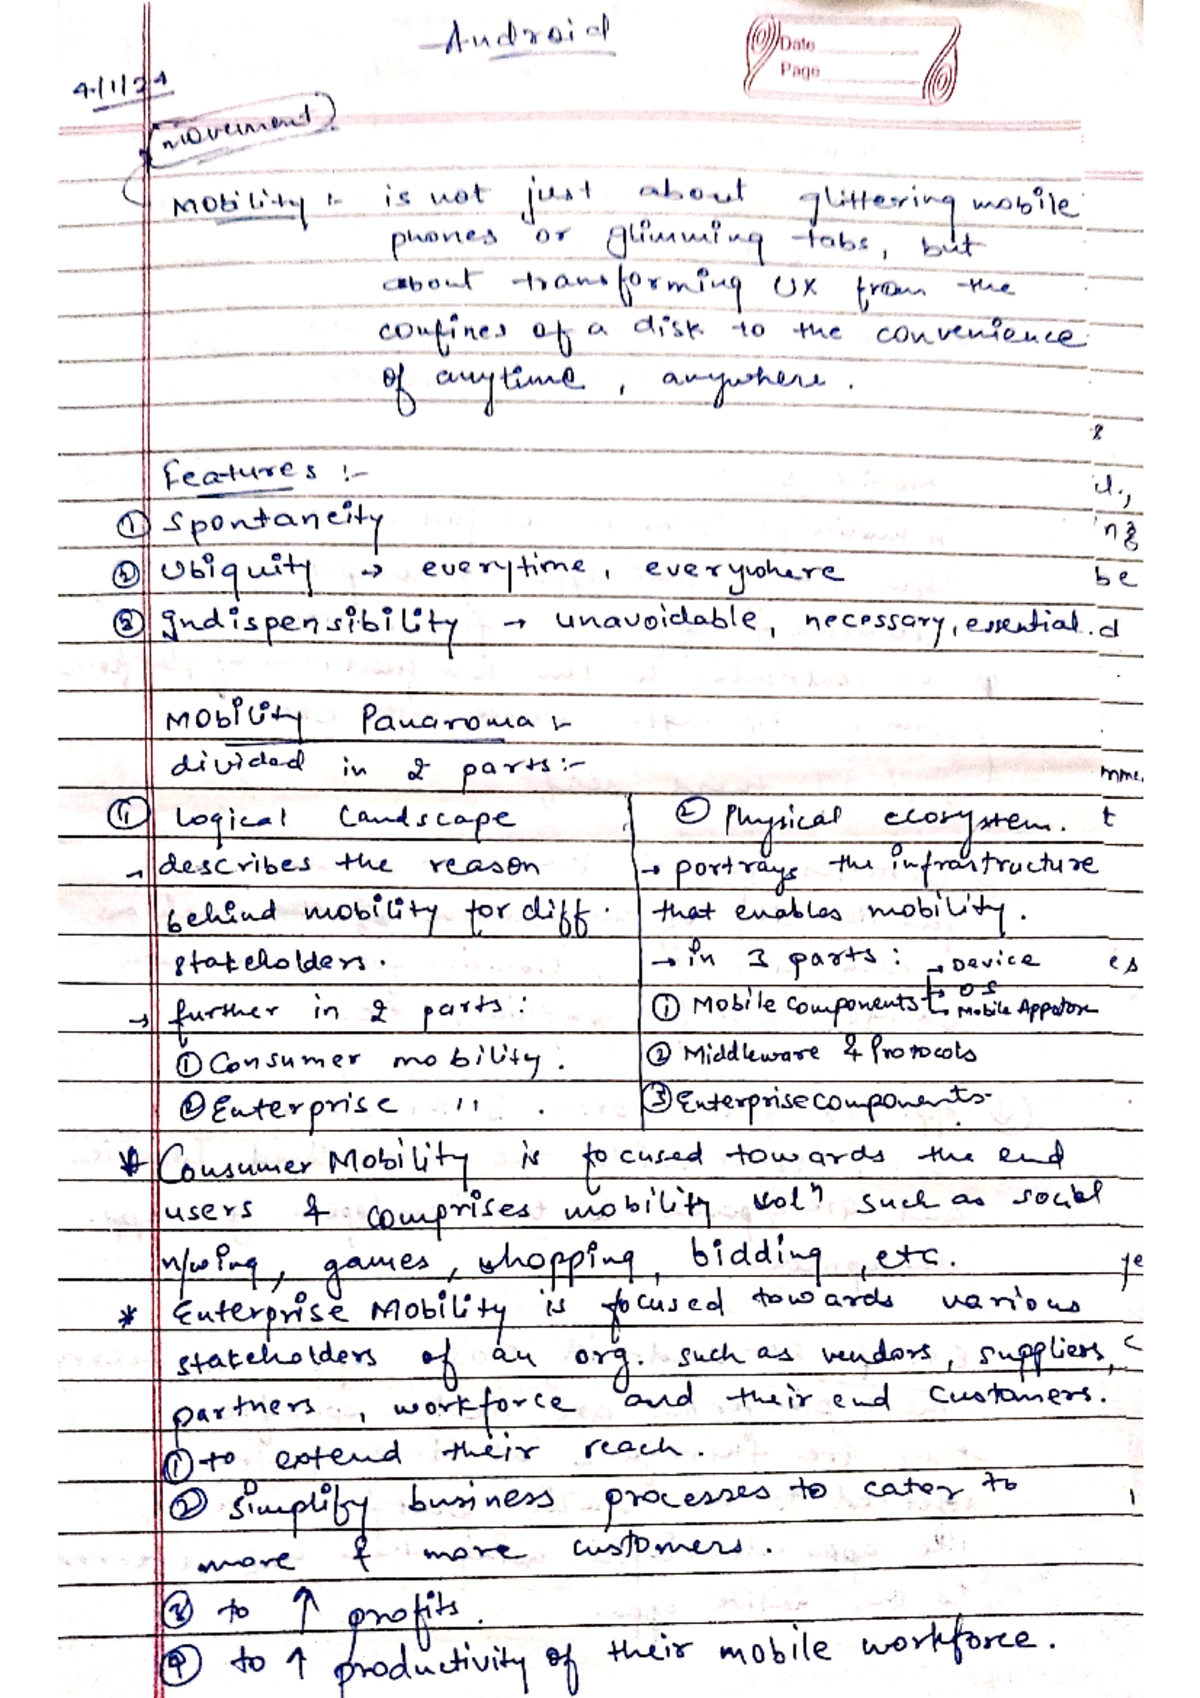 Android
Date
Page
4/1/24
movement
Mobility :- is not just about glittering mobile
phones or glimming tabs, but
about transforming UX from the
confines of a disk to the convenience
of anytime, anywhere.
Features :-
① Spontaneity
② Ubiquity → everytime, everywhere
③ Indispensibility → unavoidable, necessary, essential.
Mobility Panaroma :-
divided in 2 parts :-
① Logical Landscape
→ describes the reason
behind mobility for diff.
stakeholders.
→ further in 2 parts :
① Consumer mobility.
② Enterprise " .
② Physical ecosystem.
→ portrays the infrastructure
that enables mobility.
→ in 3 parts :
① Mobile components → Device
→ OS
→ Mobile Appstore
② Middleware & Protocols
③ Enterprise components.
* Consumer Mobility is focused towards the end
users & comprises mobility solⁿ such as social
n/wing, games, shopping, bidding, etc.
* Enterprise Mobility is focused towards various
stakeholders of an org. such as vendors, suppliers,
partners, workforce and their end customers.
① to extend their reach.
② simplify business processes to cater to
more & more customers.
③ to ↑ profits.
④ to ↑ productivity of their mobile workforce.
be
d
t
es
ye